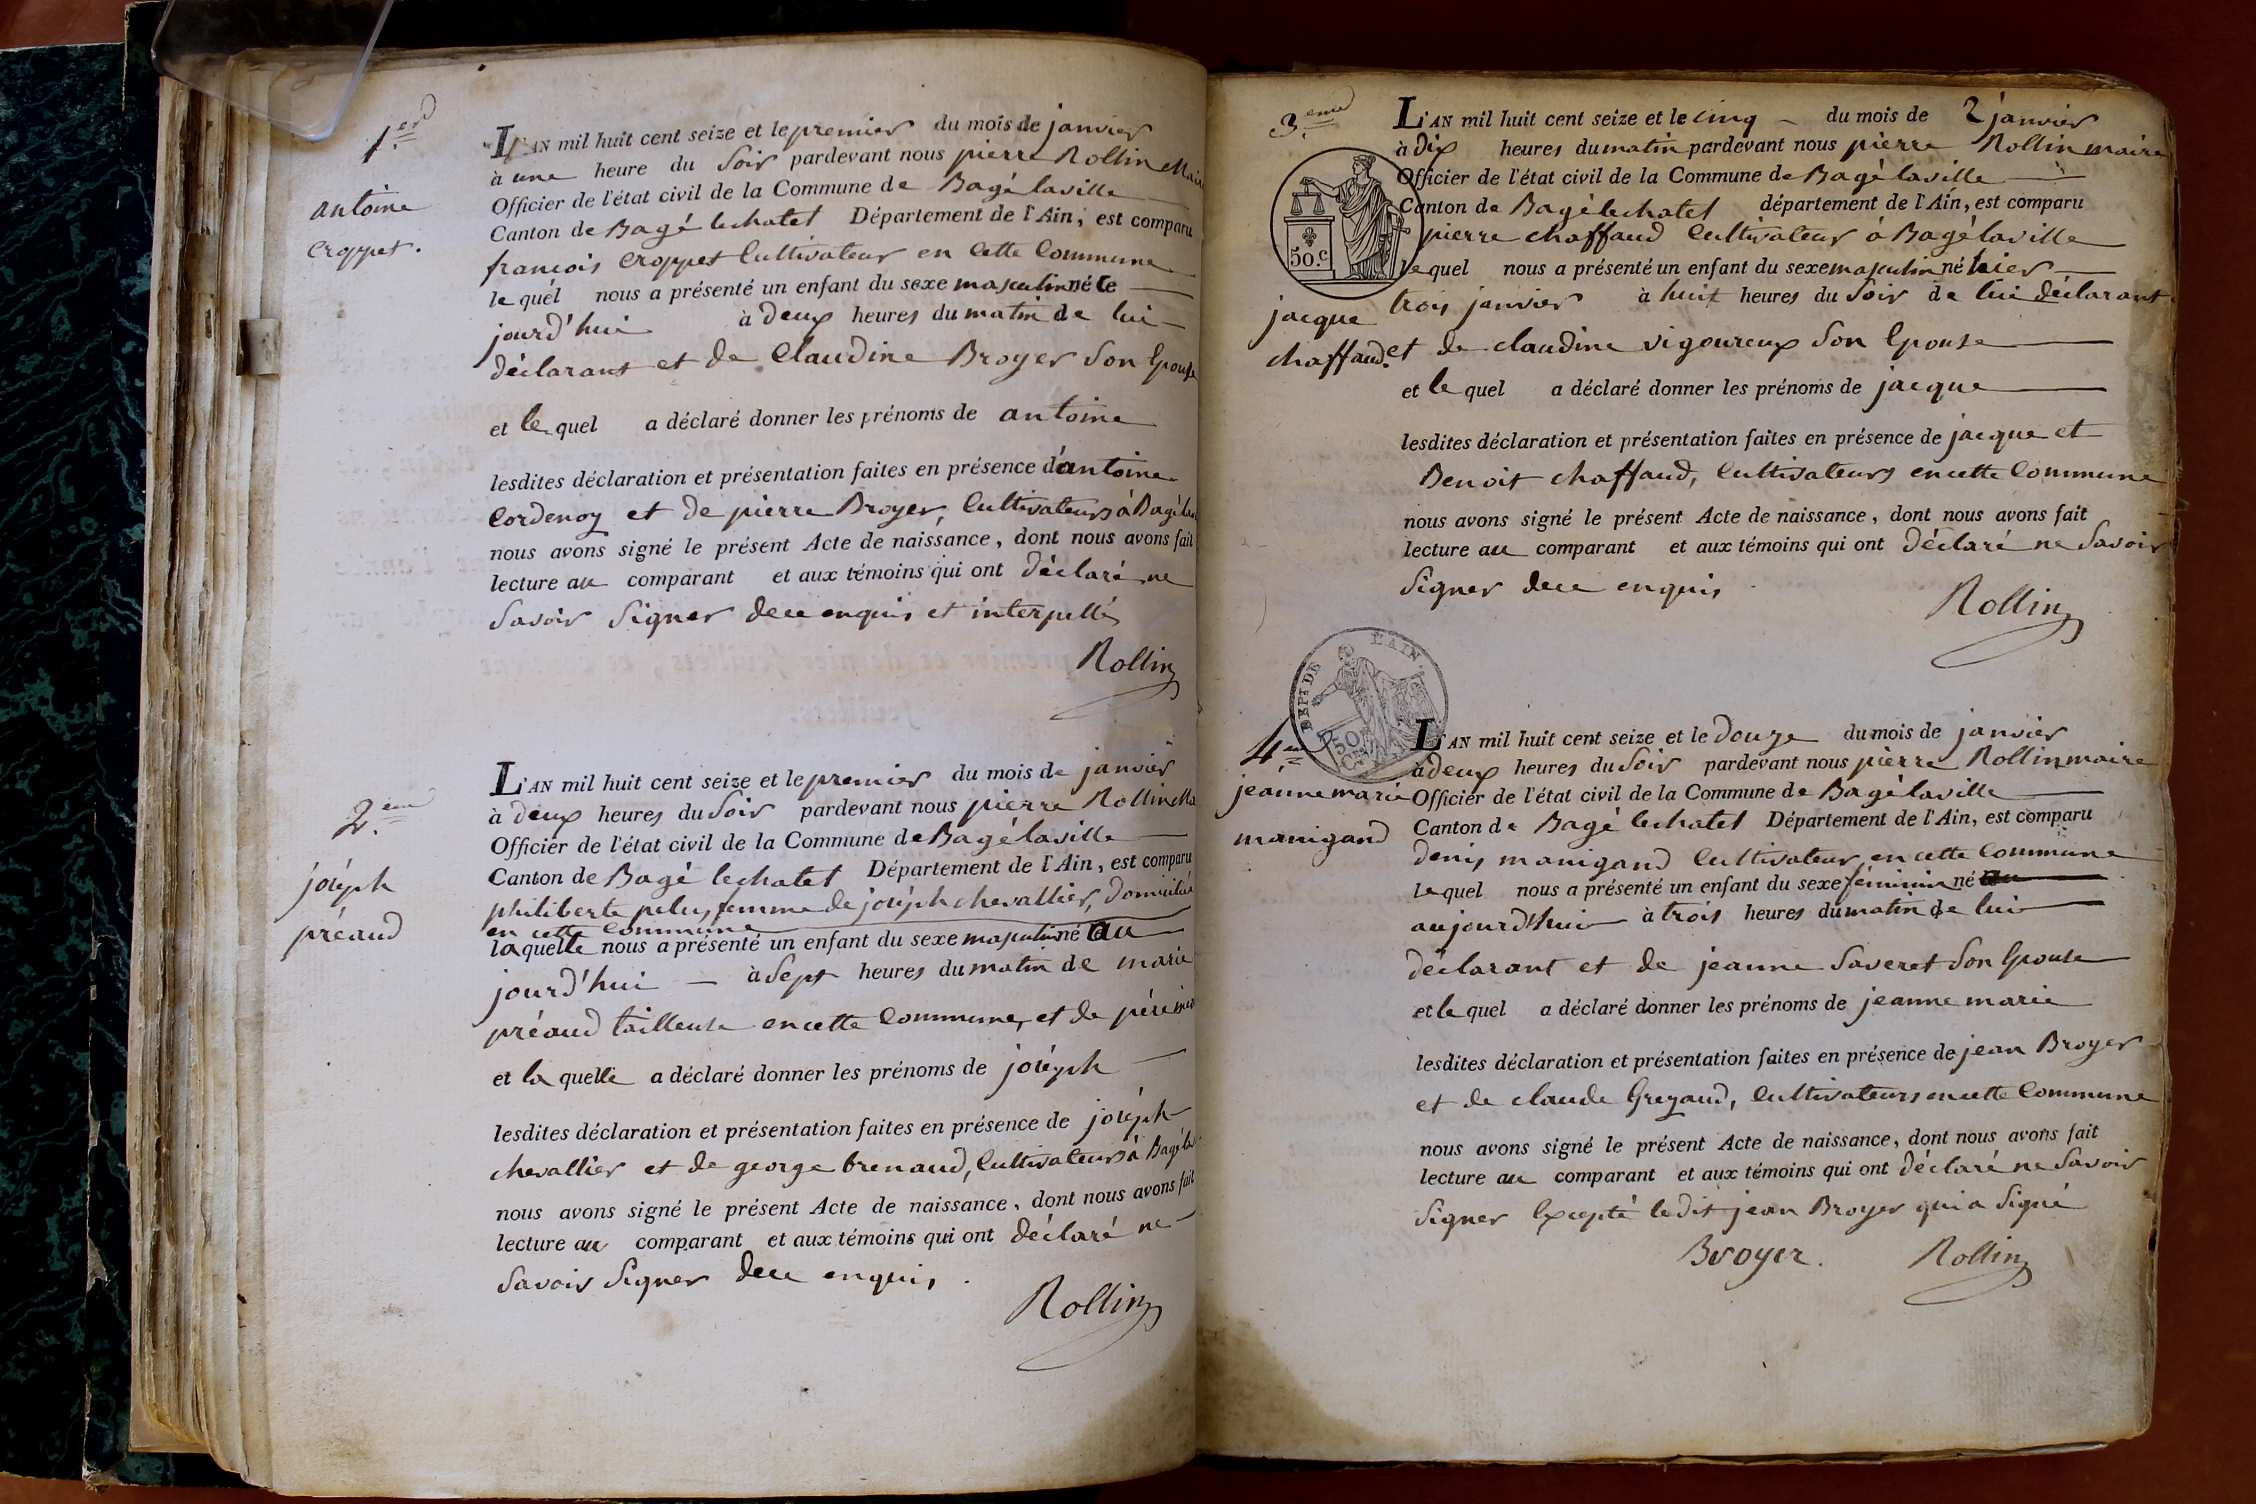 1.er
antoine
croppet.
L'AN mil huit cent seize et le premier du mois de janvier
à une heure du Soir pardevant nous pierre Rollin Maire
Officier de l'état civil de la Commune de Bagé laville
Canton de Bagé lechatel Département de l'Ain, est comparu
francois croppet Cultivateur en cette Commune
le quel nous a présenté un enfant du sexe masculin né ce
jourd'hui à deux heures du matin de lui
déclarant et de Claudine Broyer Son Epouse
et le quel a déclaré donner les prénoms de antoine
lesdites déclaration et présentation faites en présence d'antoine
Cordenoy et de pierre Broyer, Cultivateurs à Bagé
nous avons signé le présent Acte de naissance, dont nous avons fait
lecture au comparant et aux témoins qui ont déclaré ne
Savoir Signer de ce enquis et interpellé
Rollin
2.eme
joséph
préaud
L'AN mil huit cent seize et le premier du mois de janvier
à deux heures du Soir pardevant nous pierre Rollin Ma
Officier de l'état civil de la Commune de Bagé laville
Canton de Bagé lechatel Département de l'Ain, est comparu
philiberte pelus, femme de joséph chevallier, domiciliée
en cette Commune
la quelle nous a présenté un enfant du sexe masculin né au
jourd'hui à Sept heures du matin de marie
préaud tailleuse en cette Commune, et de pére
et la quelle a déclaré donner les prénoms de joséph
lesdites déclaration et présentation faites en présence de joséph
chevallier et de george brenaud, Cultivateurs à Bagé
nous avons signé le présent Acte de naissance, dont nous avons fait
lecture au comparant et aux témoins qui ont déclaré ne
Savoir Signer de ce enquis.
Rollin
3.eme
50.c
jacque
chaffaud.
L'AN mil huit cent seize et le cinq du mois de 2 janvier
à dix heures du matin pardevant nous pierre Rollin maire
Officier de l'état civil de la Commune de Bagé laville
Canton de Bagé lechatel département de l'Ain, est comparu
pierre chaffaud Cultivateur à Bagé laville
le quel nous a présenté un enfant du sexe masculin né hier
trois janvier à huit heures du Soir de lui déclarant
et de claudine vigoureux Son Epouse
et le quel a déclaré donner les prénoms de jacque
lesdites déclaration et présentation faites en présence de jacque et
Benoit chaffaud, Cultivateurs en cette Commune
nous avons signé le présent Acte de naissance, dont nous avons fait
lecture au comparant et aux témoins qui ont déclaré ne Savoir
Signer de ce enquis
Rollin
DEPT DE L'AIN.
50
4.em
jeanne marie
manigand
L'AN mil huit cent seize et le douze du mois de janvier
à deux heures du Soir pardevant nous pierre Rollin maire
Officier de l'état civil de la Commune de Bagé laville
Canton de Bagé lechatel Département de l'Ain, est comparu
denis manigand Cultivateur en cette Commune
le quel nous a présenté un enfant du sexe féminin né
aujourd'hui à trois heures du matin de lui
déclarant et de jeanne Saveret Son Epouse
et le quel a déclaré donner les prénoms de jeanne marie
lesdites déclaration et présentation faites en présence de jean Broyer
et de claude Gregaud, Cultivateurs en cette Commune
nous avons signé le présent Acte de naissance, dont nous avons fait
lecture au comparant et aux témoins qui ont déclaré ne Savoir
Signer Excepté ledit jean Broyer qui a Signé
Broyer. Rollin